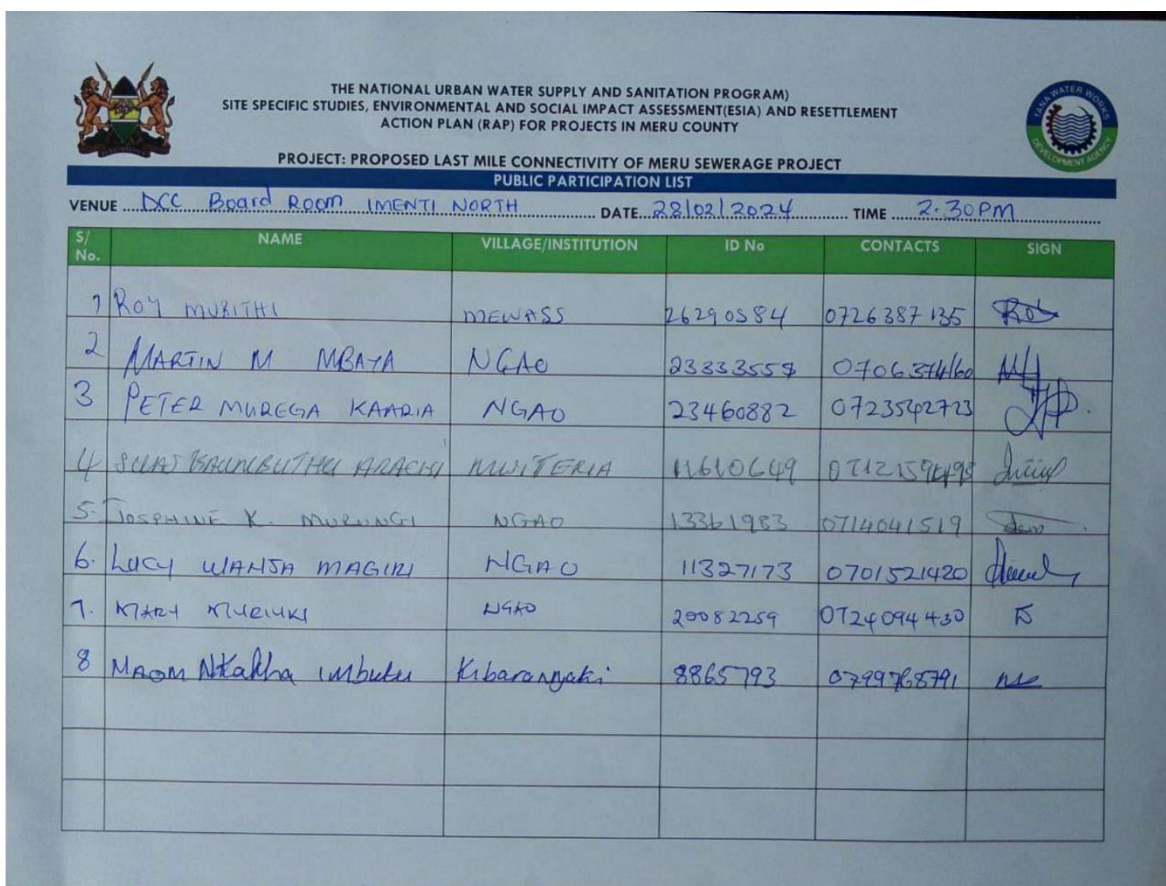 THE NATIONAL URBAN WATER SUPPLY AND SANITATION PROGRAM)
SITE SPECIFIC STUDIES, ENVIRONMENTAL AND SOCIAL IMPACT ASSESSMENT(ESIA) AND RESETTLEMENT
ACTION PLAN (RAP) FOR PROJECTS IN MERU COUNTY
TANA WATER WORKS
DEVELOPMENT AGENCY
PROJECT: PROPOSED LAST MILE CONNECTIVITY OF MERU SEWERAGE PROJECT
PUBLIC PARTICIPATION LIST
VENUE DCC Board Room IMENTI NORTH DATE 28/02/2024 TIME 2.30PM
S/No. NAME VILLAGE/INSTITUTION ID No CONTACTS SIGN
1 ROY MURITHI MEWASS 26290584 0726387135 Roy
2 MARTIN M MBAYA NGAO
3 PETER MUREGA KAARIA NGAO 23460882 0723542723
4 MWITERIA 11610649
5. JOSPHINE K. MURUNGI NGAO 13361983 0714041519
6. LUCY WANJA MAGIRI NGAO 11327173 0701521420
7. MARY MURIUKI NGAO 20082259 0724094430
8 Nkatha 8865793 0799768791